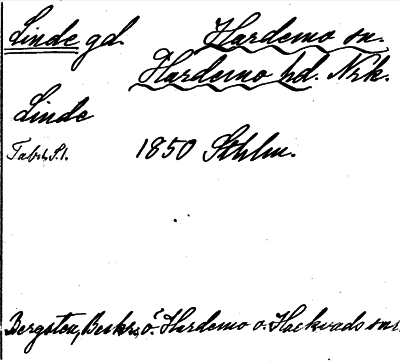 Linde gd. Hardemo sn.
Hardemo hd. Nrk.
Linde
Tab.t. S.1. 1850 Sthlm.
Bergsten, Beskr. ö. Hardemo o. Hackvads snr